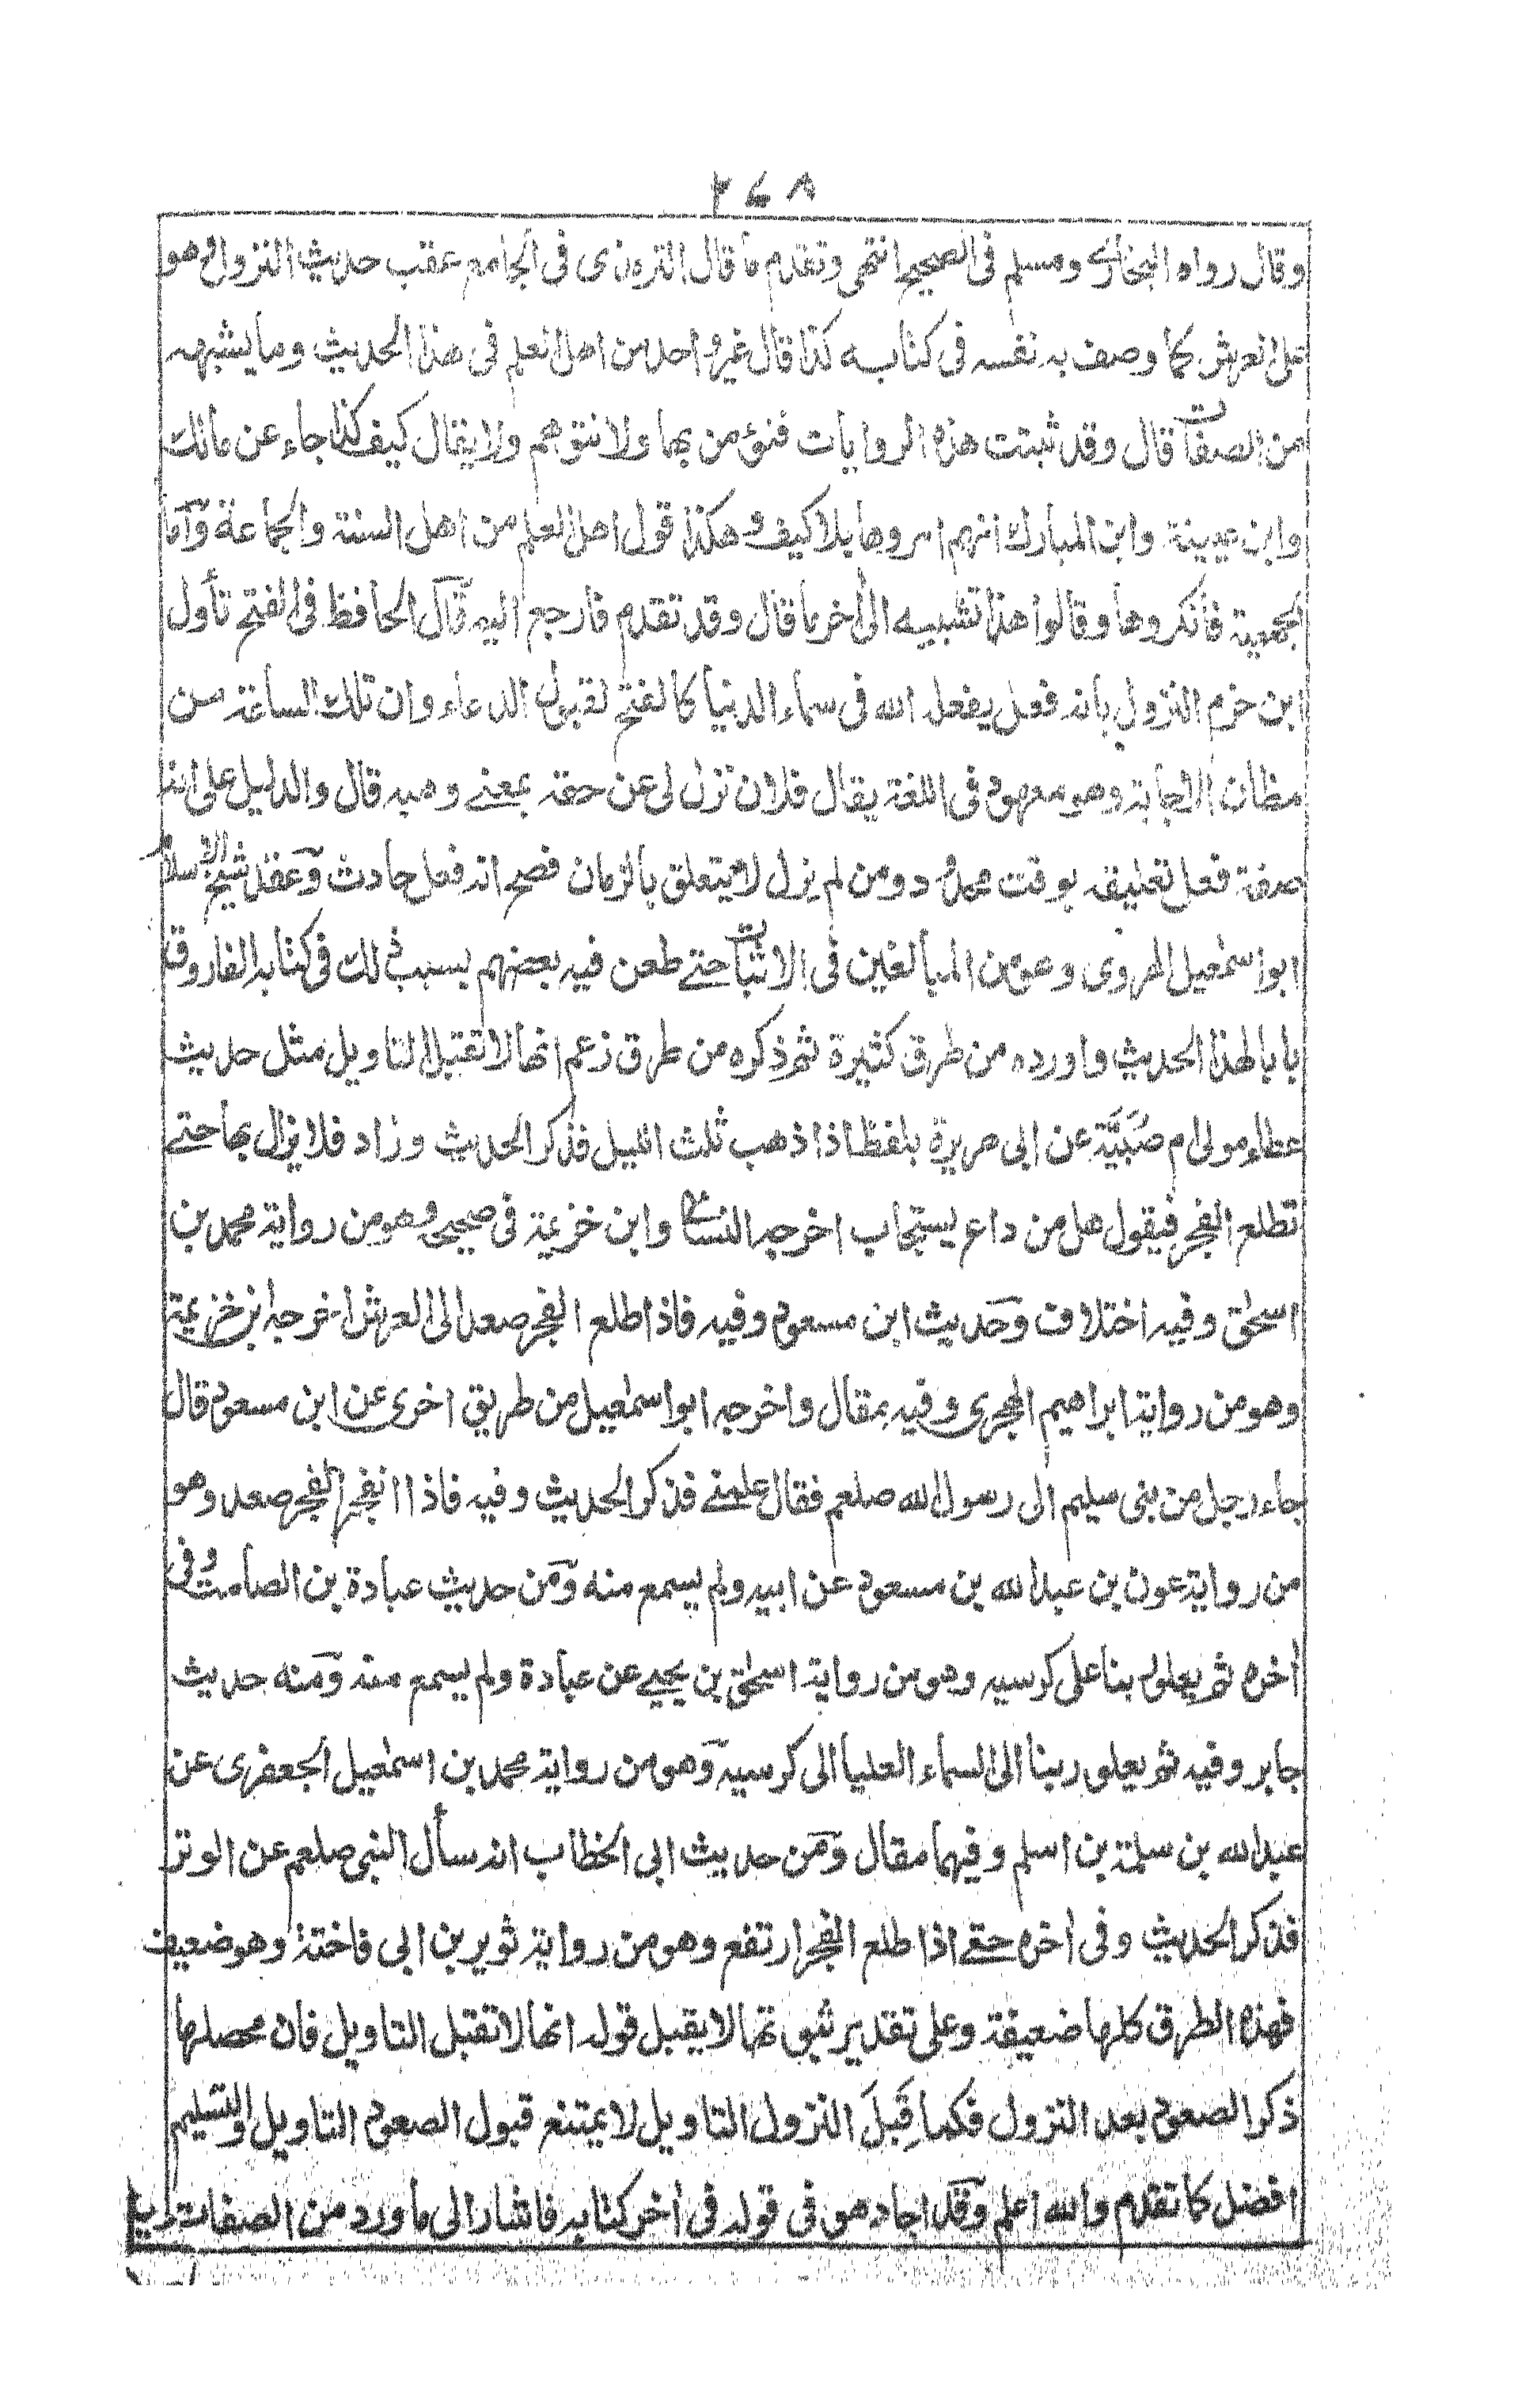 ٢٤٨
وقال رواه البخاري ومسلم في الصحيح انتهى وتقدم ما قال الترمذى فى الجامع عقب حديث النزول وهو
على العرش كما وصف به نفسه فى كتابه كذا قال غير واحد من اهل العلم فى هذا الحديث وما يشبهه
من الصفات قال وقد ثبتت هذه الروايات فنؤمن بها ولا نتوهم ولا يقال كيف كذا جاء عن مالك
وابن عيينة وابن المبارك انهم امروها بلا كيف وهكذا قول اهل العلم من اهل السنة والجماعة وأما
الجهمية فانكروها وقالوا هذا تشبيه الى أخر ما قال وقد تقدم فارجع اليه قال الحافظ فى الفتح تأول
ابن حزم النزول بانه فعل يفعله الله فى سماء الدنيا كالفتح لقبول الدعاء وان تلك الساعة من
مظان الاجابة وهو معهود فى اللغة يقال فلان نزل لى عن حقه بمعنے وهبه قال والدليل على انها
صفة فعل تعليقه بوقت محدود ومن لم يزل لا يتعلق بالزمان فصح انه فعل حادث وعقد شيخ الاسلام
ابو اسمعيل الهروى وهو من المبالغين فى الاثبات حتے طعن فيه بعضهم بسبب ذلك فى كتابه الفاروق
بابا لهذا الحديث واورده من طرق كثيرة ثم ذكره من طرق زعم انها لا تقبل التاويل مثل حديث
عطاء مولى ام صُبَيَّة عن ابى هريرة بلفظ اذا ذهب ثلث الليل فذكر الحديث وزاد فلا يزال بها حتے
تطلع الفجر فيقول هل من داع يستجاب اخرجه النسائے وابن خزيمة فى صحيحه وهو من رواية محمد بن
اسحق وفيه اختلاف وحديث ابن مسعود وفيه فاذا طلع الفجر صعد الى العرش اخرجه ابن خزيمة
وهو من رواية ابراهيم الهجرى وفيه مقال واخرجه ابو اسمعيل من طريق اخرى عن ابن مسعود قال
جاء رجل من بنى سليم الى رسول الله صلعم فقال علمنے فذكر الحديث وفيه فاذا انفجر الفجر صعد وهو
من رواية عون بن عبد الله بن مسعود عن ابيه ولم يسمع منه ومن حديث عبادة بن الصامت وفى
أخره ثم يعلو ربنا على كرسيه وهو من رواية اسحق بن يحيے عن عبادة ولم يسمع منه ومنه حديث
جابر وفيه ثم يعلو ربنا الى السماء العليا الى كرسيه وهو من رواية محمد بن اسمعيل الجعفرى عن
عبد الله بن سلمة بن اسلم وفيهما مقال ومن حديث ابى الخطاب انه سأل النبى صلعم عن الوتر
فذكر الحديث وفى أخره حتے اذا طلع الفجر ارتفع وهو من رواية ثوير بن ابى فاختة وهو ضعيف
فهذه الطرق كلها ضعيفة وعلى تقدير ثبوتها لا يقبل قوله انها لا تقبل التاويل فان محصلها
ذكر الصعود بعد النزول فكما قَبِلَ النزول التاويل لا يمتنع قبول الصعود التاويل والتسليم
افضل كما تقدم والله اعلم وقد اجاد هو فى قوله فى أخر كتابه فاشار الى ما ورد من الصفات